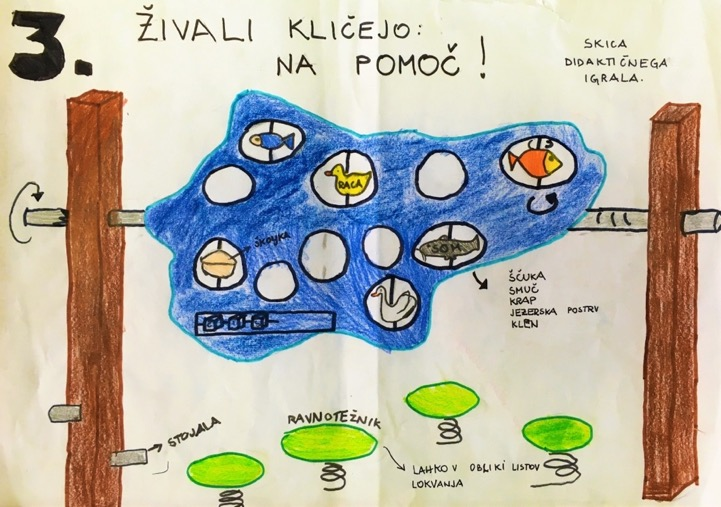 3.
ŽIVALI KLIČEJO:
NA POMOČ!
SKICA
DIDAKTIČNEGA
IGRALA.
RACA
ŠKOLJKA
SOM
ŠČUKA
SMUČ
KRAP
JEZERSKA POSTRV
KLEN
STOJALA
RAVNOTEŽNIK
LAHKO V OBLIKI LISTOV
LOKVANJA